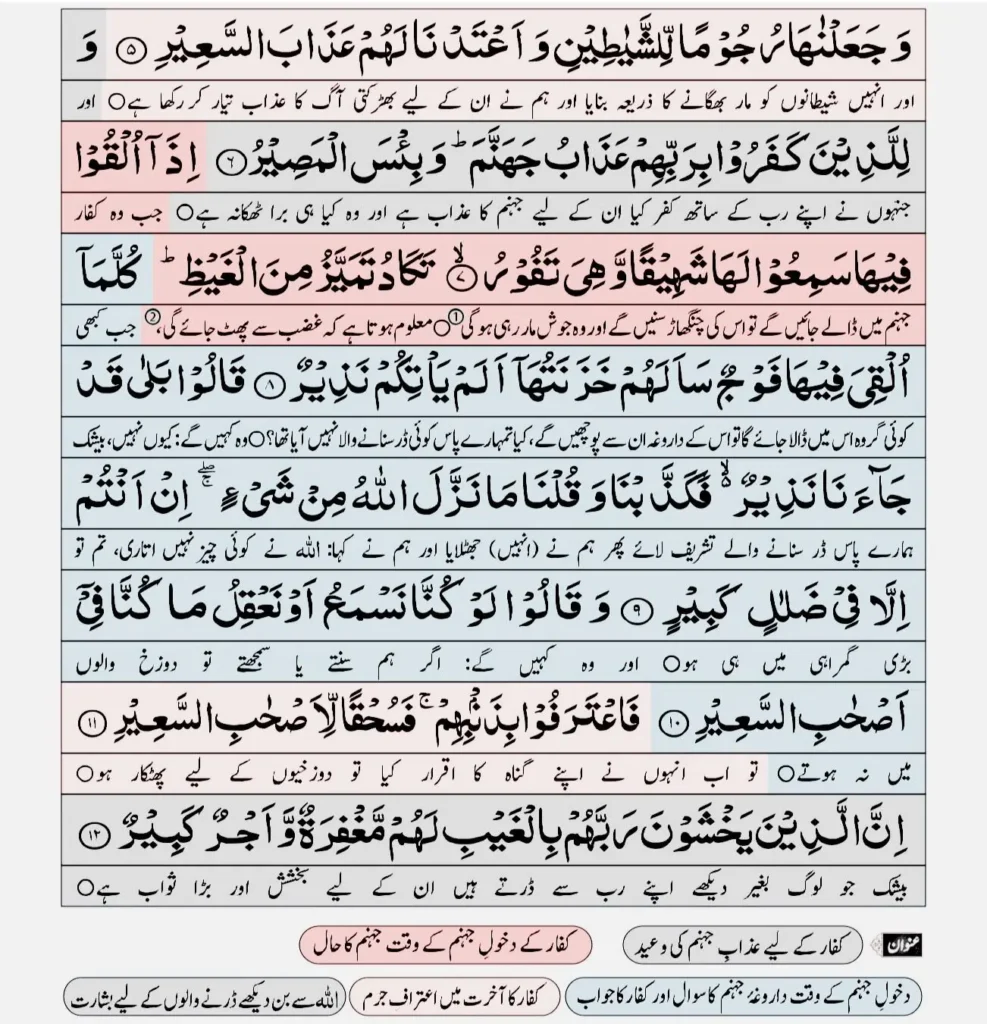 وَ جَعَلْنٰهَا رُجُوْمًا لِّلشَّیٰطِیْنِ وَ اَعْتَدْنَا لَهُمْ عَذَابَ السَّعِیْرِ ۝۵ وَ
اور انہیں شیطانوں کو مار بھگانے کا ذریعہ بنایا اور ہم نے ان کے لیے بھڑکتی آگ کا عذاب تیار کر رکھا ہے○ اور
لِلَّذِیْنَ كَفَرُوْا بِرَبِّهِمْ عَذَابُ جَهَنَّمَ ؕ وَ بِئْسَ الْمَصِیْرُ ۝۶ اِذَاۤ اُلْقُوْا
جنہوں نے اپنے رب کے ساتھ کفر کیا ان کے لیے جہنم کا عذاب ہے اور وہ کیا ہی برا ٹھکانہ ہے○ جب وہ کفار
فِیْهَا سَمِعُوْا لَهَا شَهِیْقًا وَّ هِیَ تَفُوْرُ ۝۷ۙ تَكَادُ تَمَیَّزُ مِنَ الْغَیْظِ ؕ كُلَّمَاۤ
جہنم میں ڈالے جائیں گے تو اس کی چنگھاڑ سنیں گے اور وہ جوش مار رہی ہوگی①○ معلوم ہوتا ہے کہ غضب سے پھٹ جائے گی،② جب کبھی
اُلْقِیَ فِیْهَا فَوْجٌ سَاَلَهُمْ خَزَنَتُهَاۤ اَلَمْ یَاْتِكُمْ نَذِیْرٌ ۝۸ قَالُوْا بَلٰی قَدْ
کوئی گروہ اس میں ڈالا جائے گا تو اس کے داروغہ ان سے پوچھیں گے، کیا تمہارے پاس کوئی ڈر سنانے والا نہیں آیا تھا؟○ وہ کہیں گے: کیوں نہیں، بیشک
جَآءَنَا نَذِیْرٌ ۬ۙ فَكَذَّبْنَا وَ قُلْنَا مَا نَزَّلَ اللّٰهُ مِنْ شَیْءٍ ۖۚ اِنْ اَنْتُمْ
ہمارے پاس ڈر سنانے والے تشریف لائے پھر ہم نے (انہیں) جھٹلایا اور ہم نے کہا: اللہ نے کوئی چیز نہیں اتاری، تم تو
اِلَّا فِیْ ضَلٰلٍ كَبِیْرٍ ۝۹ وَ قَالُوْا لَوْ كُنَّا نَسْمَعُ اَوْ نَعْقِلُ مَا كُنَّا فِیْۤ
بڑی گمراہی میں ہی ہو○ اور وہ کہیں گے: اگر ہم سنتے یا سمجھتے تو دوزخ والوں
اَصْحٰبِ السَّعِیْرِ ۝۱۰ فَاعْتَرَفُوْا بِذَنْۢبِهِمْ ۚ فَسُحْقًا لِّاَصْحٰبِ السَّعِیْرِ ۝۱۱
میں نہ ہوتے○ تو اب انہوں نے اپنے گناہ کا اقرار کیا تو دوزخیوں کے لیے پھٹکار ہو○
اِنَّ الَّذِیْنَ یَخْشَوْنَ رَبَّهُمْ بِالْغَیْبِ لَهُمْ مَّغْفِرَةٌ وَّ اَجْرٌ كَبِیْرٌ ۝۱۲
بیشک جو لوگ بغیر دیکھے اپنے رب سے ڈرتے ہیں ان کے لیے بخشش اور بڑا ثواب ہے○
عنوان کفار کے لیے عذابِ جہنم کی وعید کفار کے دخولِ جہنم کے وقت جہنم کا حال
دخولِ جہنم کے وقت داروغۂ جہنم کا سوال اور کفار کا جواب کفار کا آخرت میں اعترافِ جرم اللہ سے بن دیکھے ڈرنے والوں کے لیے بشارت